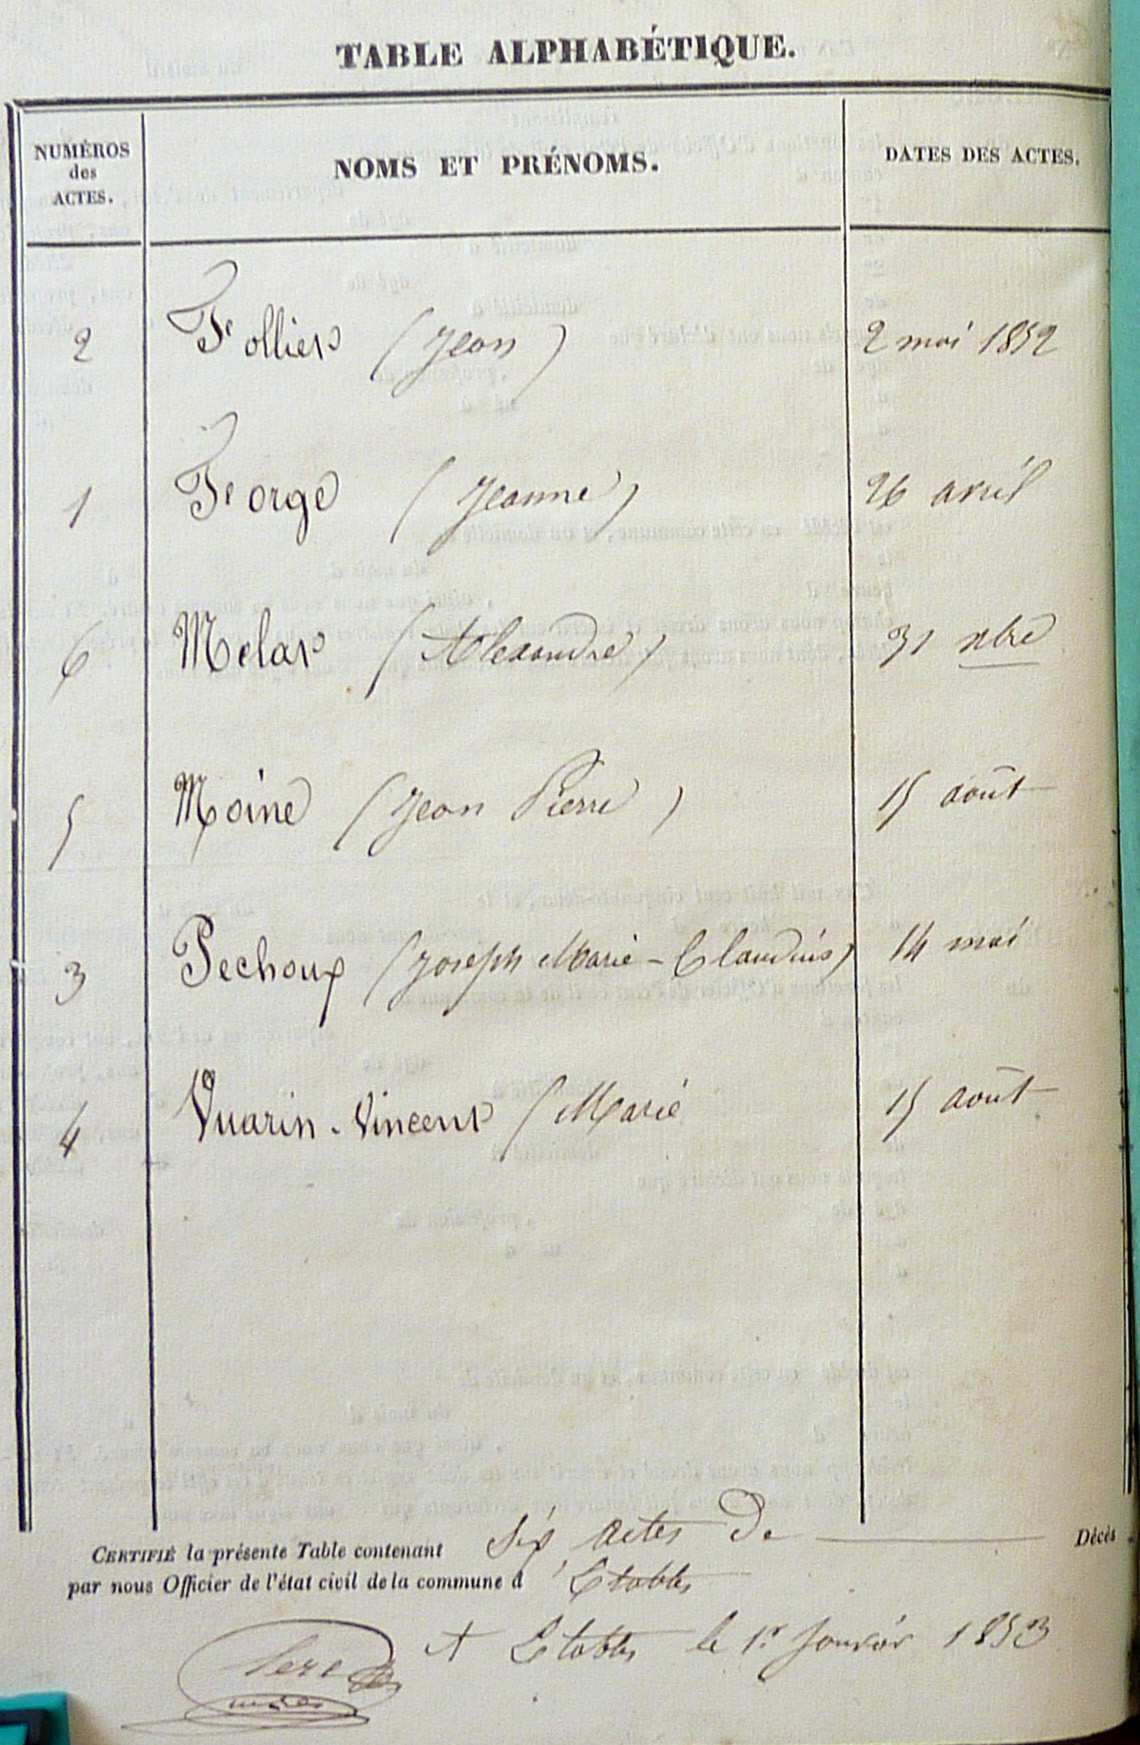 TABLE ALPHABÉTIQUE.
NUMÉROS des ACTES. NOMS ET PRÉNOMS. DATES DES ACTES.
2 Follier (Jean) 2 mai 1852
1 Forge (Jeanne) 26 avril
6 Melar (Alexandre) 31 xbre
5 Moine (Jean Pierre) 15 août
3 Pechoux (Joseph Marie-Claudius) 14 mai
4 Vuarin-Vincent (Marie 15 août
CERTIFIÉ la présente Table contenant six actes De Décès
par nous Officier de l'état civil de la commune d' Etables
A Etables le 1r Janvier 1853